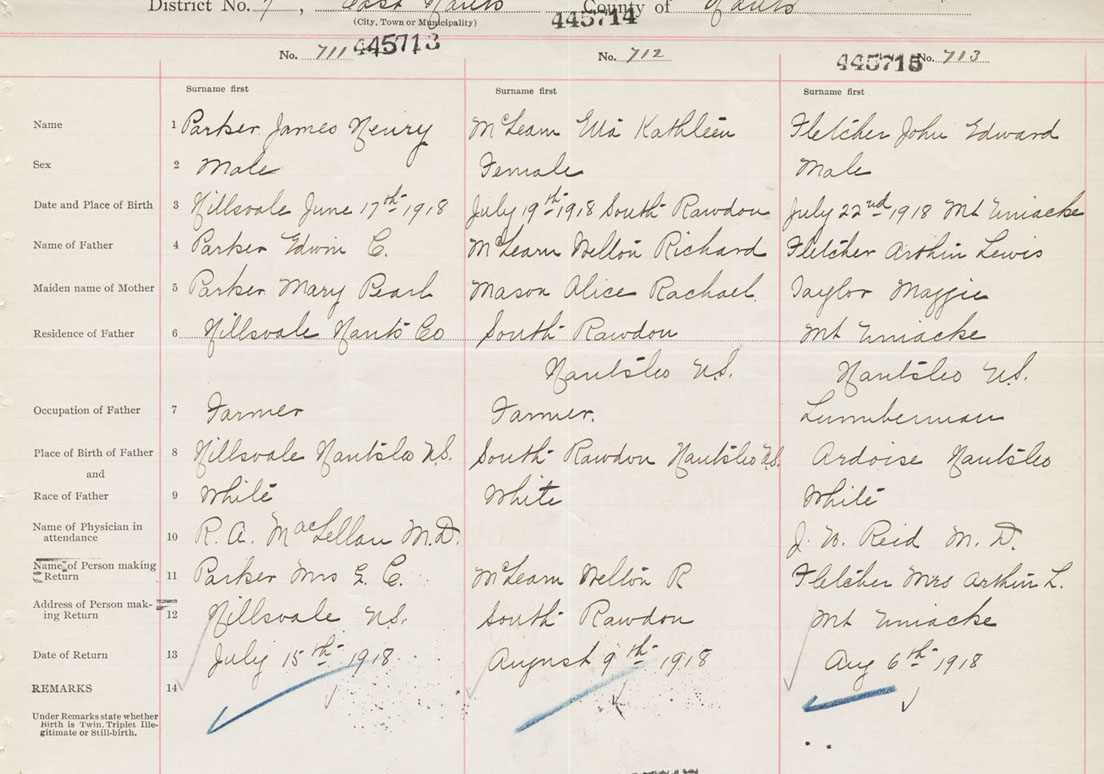 District No. 7, East Hants County of Hants
(City, Town or Municipality)
445714
No. 711 445713 No. 712 445715 No. 713
Surname first Surname first Surname first
Name 1 Parker James Henry McLearn Etta Kathleen Fletcher John Edward
Sex 2 Male Female Male
Date and Place of Birth 3 Hillsvale June 17th 1918 July 19th 1918 South Rawdon July 22nd 1918 Mt Uniacke
Name of Father 4 Parker Edwin C. McLearn Welton Richard Fletcher Arthur Lewis
Maiden name of Mother 5 Parker Mary Pearl Mason Alice Rachael Taylor Maggie
Residence of Father 6 Hillsvale Hants Co South Rawdon Mt Uniacke
Hants Co N.S. Hants Co N.S.
Occupation of Father 7 Farmer Farmer. Lumberman
Place of Birth of Father 8 Hillsvale Hants Co N.S. South Rawdon Hants Co N.S. Ardoise Hants Co
and
Race of Father 9 White White White
Name of Physician in
attendance 10 R. A. MacLellan M.D. J. W. Reid M. D.
Name of Person making
Return 11 Parker Mrs E. C. McLearn Welton R Fletcher Mrs Arthur L.
Address of Person mak-
ing Return 12 Hillsvale N.S. South Rawdon Mt Uniacke
Date of Return 13 July 15th 1918 August 9th 1918 Aug 6th 1918
REMARKS 14
Under Remarks state whether
Birth is Twin. Triplet Ille-
gitimate or Still-birth.